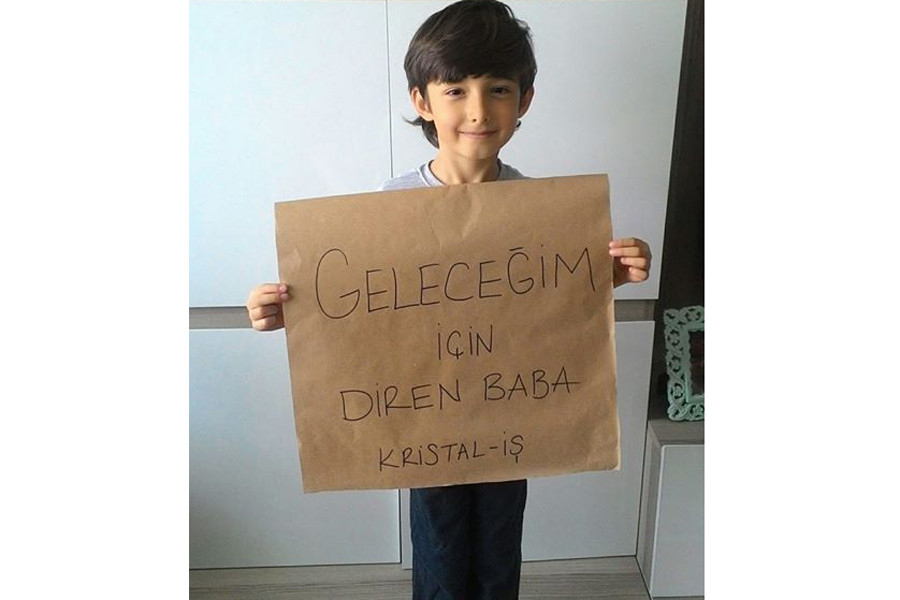 GELECEĞİM
İÇİN
DİREN BABA
KRİSTAL-İŞ